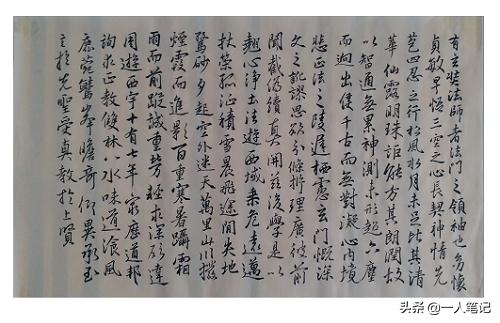 有玄奘法師者法門之領袖也幼懷
貞敏早悟三空之心長契神情先
苞四忍之行松風水月未足比其清
華仙露明珠詎能方其朗潤故
以智通無累神測未形超六塵
而迥出使千古而無對凝心內境
悲正法之陵遲栖慮玄門慨深
文之訛謬思欲分條析理廣彼前
聞截偽續真開茲後學是以
翹心淨土法遊西域乘危遠邁
杖策孤征積雪晨飛途間失地
驚砂夕起空外迷天萬里山川撥
煙霞而進影百重寒暑躡霜
雨而前蹤誠重勞輕求深願達
周遊西宇十有七年窮歷道邦
詢求正教雙林八水味道飡風
鹿菀鷲峯瞻奇仰異承至
言於先聖受真教於上賢
头条 @一人笔记